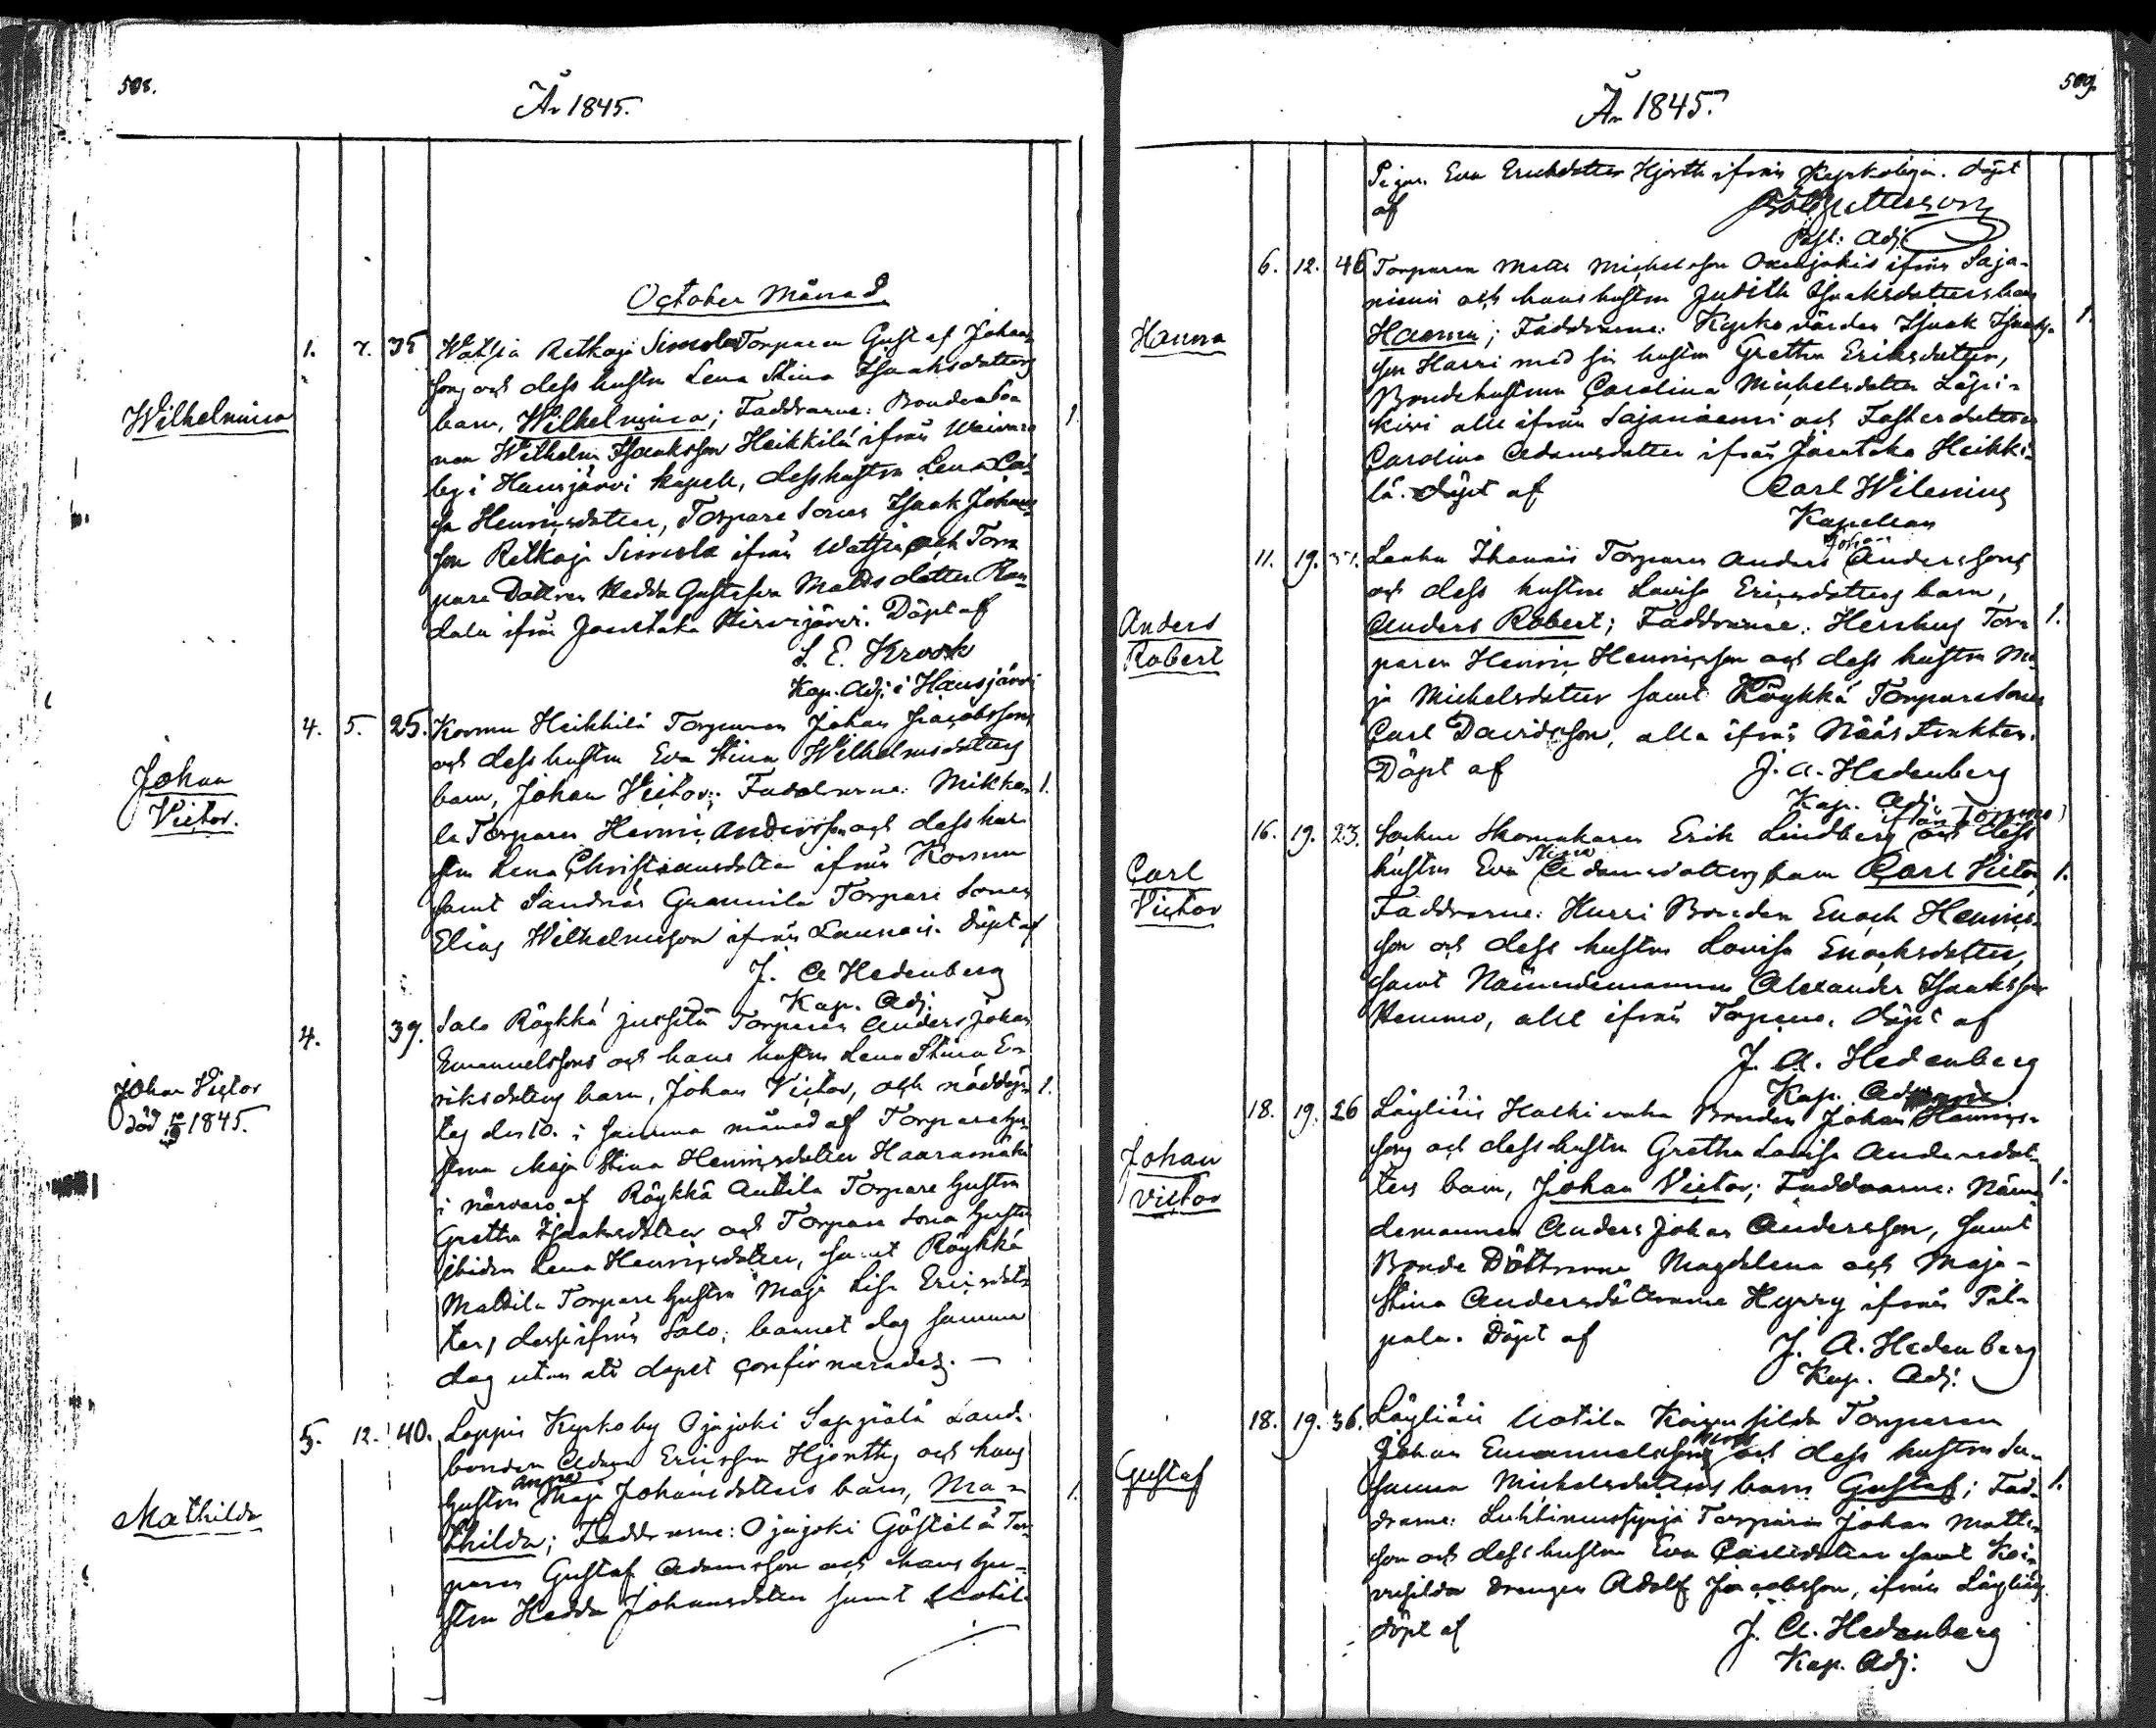 508.
År 1845.
October Månad
Wilhelmina
1. 7. 35 Watsia Retkoja Simola Torparen Gustaf Johans
sons och dess hustru Lena Stina Isaaksdotters
barn, Wilhelmina; Faddrarne: Bondesson 1
Wilhelm Isaaksson Heikkilä ifrån
by i Hausjärvi kapell, dess hustru Lena
sa Henricsdotter, Torpare Sonen Isaak Johans
son Retkoja Simola ifrån Watsia och Tor
pare Dottren Hedda Gustafva Mattsdotter
ifrån Janakala Hirvijärvi. Döpt af
L. E. Krook
Kap. Adj. i Hausjärvi
Johan
Victor.
4. 5. 25. Kormu Heikkilä Torparen Johan Jacobssons
och dess hustru Eva Stina Wilhelmsdotters
barn, Johan Victor; Faddrarne: Mikko 1.
la Torparen Henric Andersson och dess hu
stru Lena Christiansdotter ifrån Kormu
samt Sandnäs Grannila Torpare Sonen
Elias Wilhelmsson ifrån Launois. Döpt af
J. A. Hedenberg
Kap. Adj.
Johan Victor
död 10/10 1845.
4. 39. Salo Röykkä Jussila Torparen Anders Johan
Emanuelssons och hans hustru Lena Stina E-
riksdotters barn, Johan Victor, och nöddöp- 1.
tes den 10. i samma månad af Torpare hu
strun Maja Stina Henricsdotter Haaramäki
i närvaro af Röykkä Anttila Torpare hustrun
Gretha Isaaksdotter och Torpare Sona hustrun
ibidem Lena Henricsdotter, samt Röykkä
Mattila Torpare hustrun Maja Lisa Ericsdot
ter, dessa ifrån Salo, barnet dog samma
dag utan att dopet confirmerades. —
Mathilda
5. 12. 40. Loppis Kyrkoby Ojajoki Seppälä Land-
bonden Adam Ericsson Hjorths och hans
Anna
hustru Maja Johansdotters barn, Ma- 1.
thilda; Faddrarne: Ojajoki Göstälä Tor
paren Gustaf Adamsson och hans hu-
stru Hedda Johansdotter samt
509.
År 1845.
Pigan Eva Ericsdotter Hjorth ifrån Kyrkobyn. döpt
af
Past: Adj.
Hanna
6. 12. 46 Torparen Matts Michelsson Ojajokis ifrån Saja-
niemi och hans hustru Judith Isaaksdotters barn
Hanna; Faddrarne: Kyrkovärden Isaak Isaaks- 1.
son Harri med sin hustru Gretha Eriksdotter,
Bondehustrun Carolina Michelsdotter Läpi-
kivi alla ifrån Sajaniemi och Fosterdottren
Carolina Adamsdotter ifrån Janakala Heikki-
lä. Döpt af Carl Wilenius
Kapellan
Anders
Robert
11. 19. Johan
Lauha Ihamais Torparen Anders Anderssons
och dess hustru Lovisa Ericsdotters barn,
Anders Robert; Faddrarne: Torp 1.
paren Henric Henricsson och dess hustru Ma
ja Michelsdotter samt Röykkä Torparesonen
Carl Davidsson, alla ifrån
Döpt af J. A. Hedenberg
Kap. Adj.
Carl
Victor
ifrån Torpeno)
16. 19. 23. Skomakaren Erik Lindberg och dess
Stina
hustru Eva Adamsdotters barn Carl Victor 1.
Faddrarne: Hurri Bonden Enoch Henrics-
son och dess hustru Lovisa Enochsdotter,
samt Nämndemannen Alexander Isaksson
Hemmo, alla ifrån Torpeno. döpt af
J. A. Hedenberg
Kap. Adj.
Johan
Victor
18. 19. 26 Läyliäis Bonden Johan Henrics-
sons och dess hustru Gretha Lovisa Andersdot-
ters barn, Johan Victor; Faddrarne: Näm- 1.
demannen Anders Johan Andersson, samt
Bonde Döttrarne Magdelena och Maja-
Stina Andersdöttrarne Hyrry ifrån Pil-
pala. Döpt af J. A. Hedenberg
Kap. Adj.
Gustaf
18. 19. 36. Läyliäis Uotila Koivusilda Torparen
Johan Emanuelssons och dess hustru Su-
sanna Michelsdotters barn Gustaf; Fad- 1.
drarne: Torparen Johan Matts
son och dess hustru Eva Carlsdotter samt Koi-
vusilda drengen Adolf Jacobsson, ifrån Läyliäis
döpt af J. A. Hedenberg
Kap. Adj.